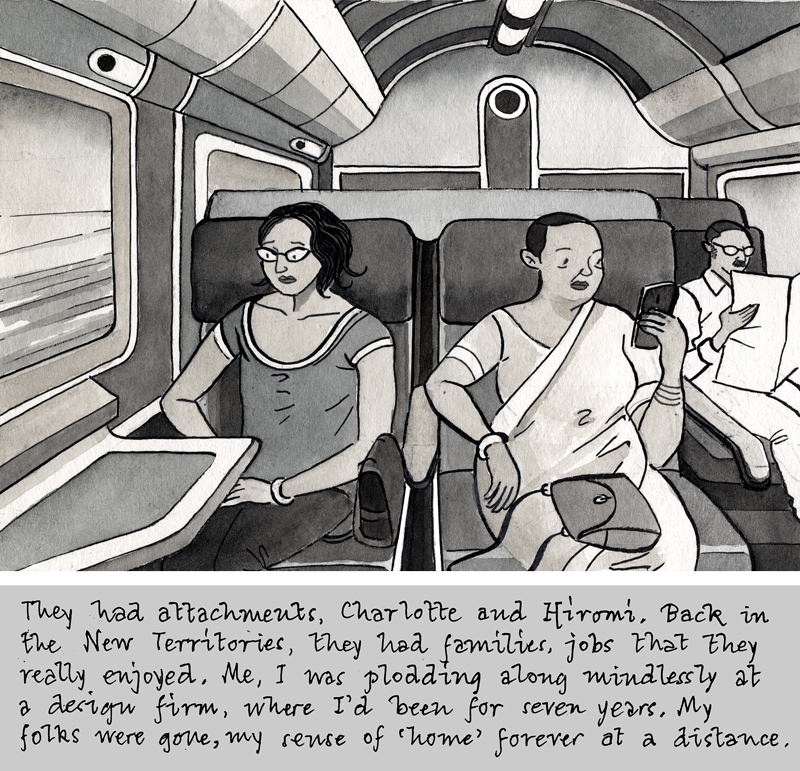 They had attachments, Charlotte and Hiromi. Back in
the New Territories, they had families, jobs that they
really enjoyed. Me, I was plodding along mindlessly at
a design firm, where I'd been for seven years. My
folks were gone, my sense of 'home' forever at a distance.